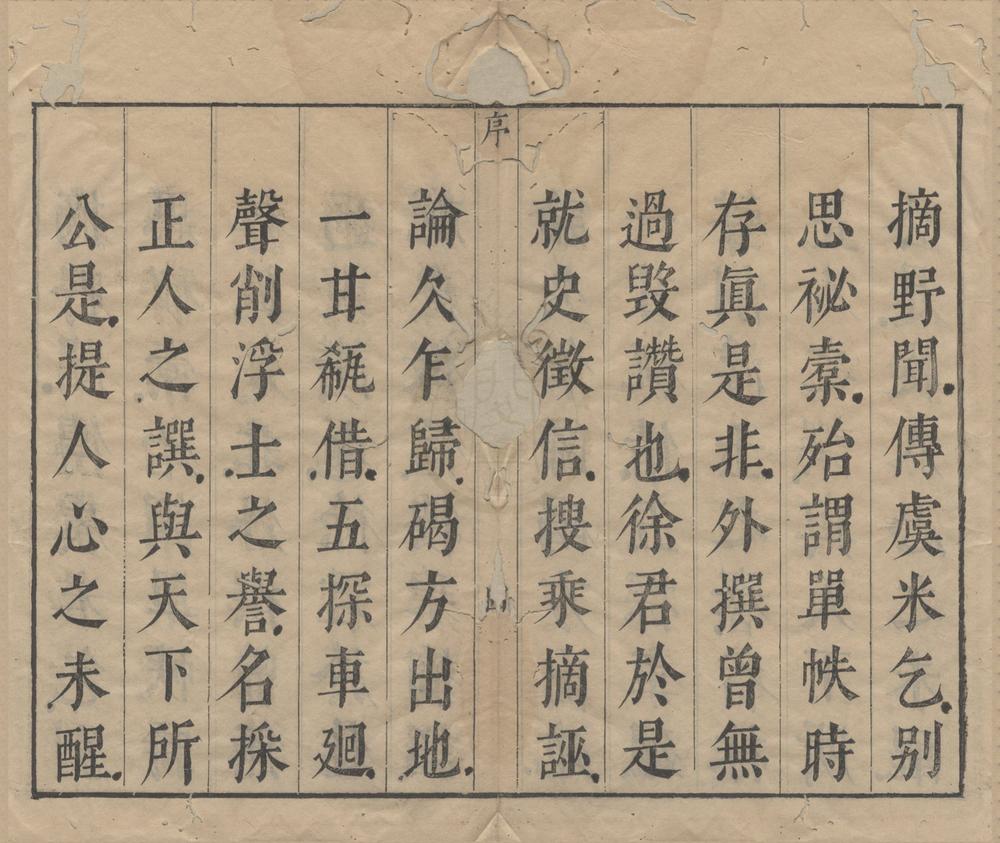 摘野聞傳虞米乞别
思祕橐殆謂單帙時
存眞是非外撰曾無
過毀讚也徐君於是
就史徵信搜乘摘誣
序
論久乍歸碣方出地
一甘瓻借五探車廻
聲削浮士之譽名採
正人之譔與天下所
公是提人心之未醒